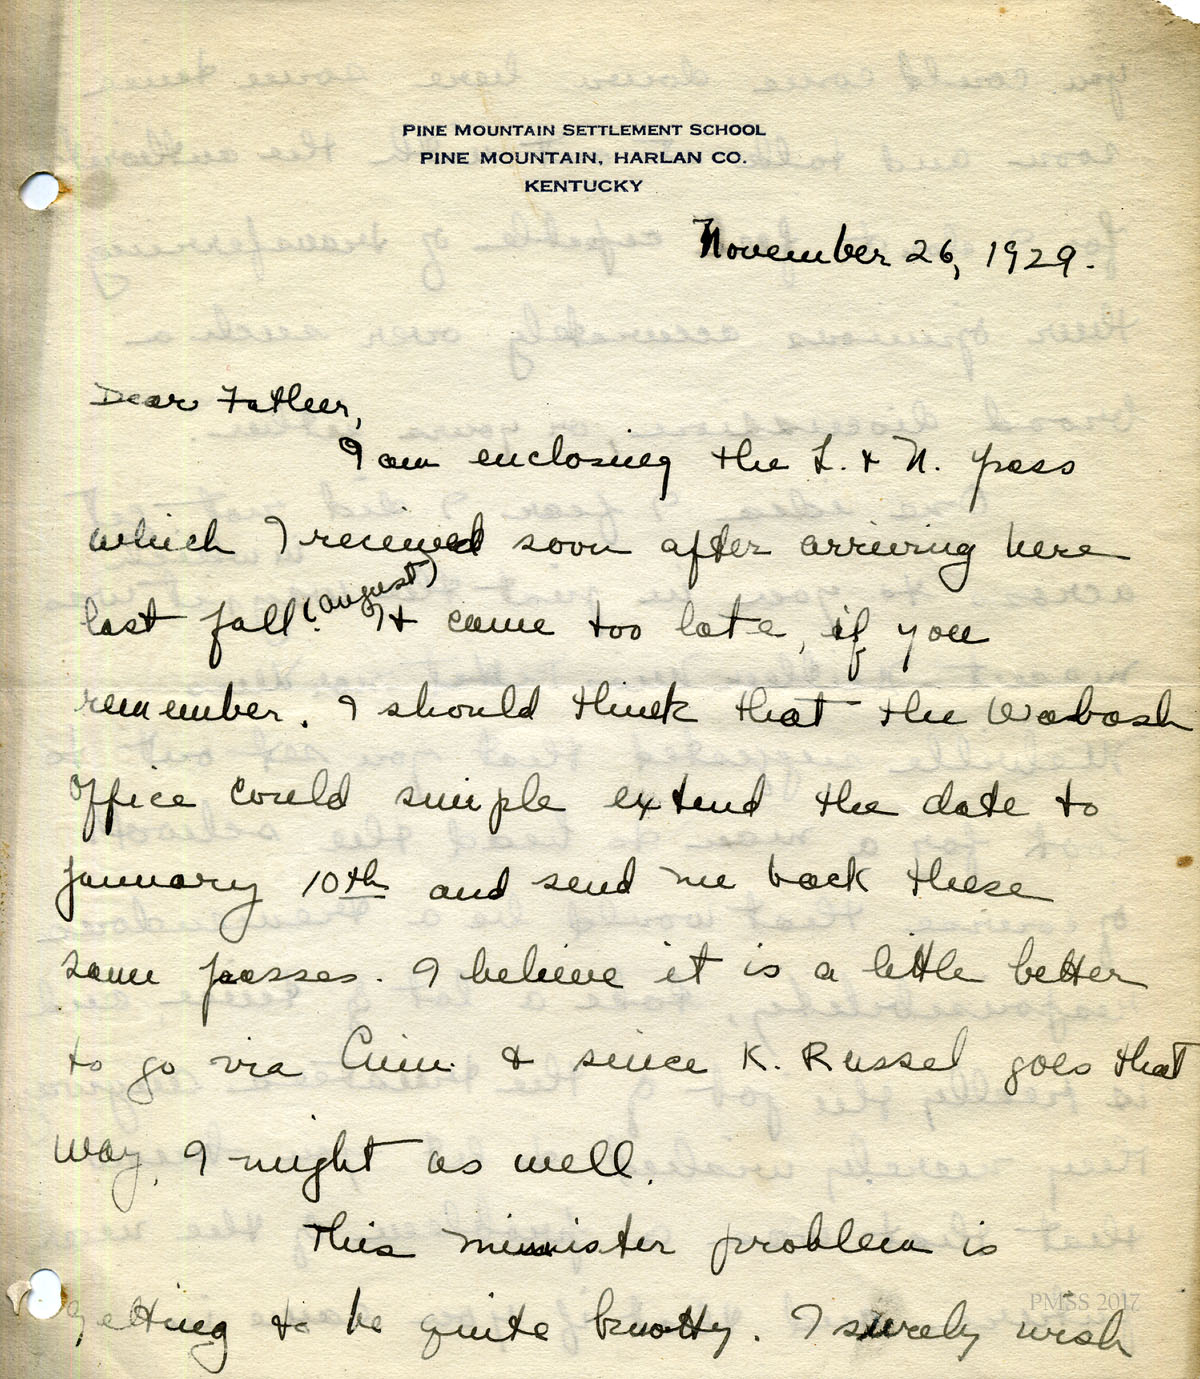 PINE MOUNTAIN SETTLEMENT SCHOOL
PINE MOUNTAIN, HARLAN CO.
KENTUCKY
November 26, 1929.
Dear Father,
I am enclosing the L. & N. pass
which I received soon after arriving here
last fall. (August) It came too late, if you
remember. I should think that the Wabash
office could simple extend the date to
January 10th and send me back these
same passes. I believe it is a little better
to go via Cinn. & since K. Russel goes that
way, I might as well.
This minister problem is
getting to be quite knotty. I surely wish
PMSS 2017